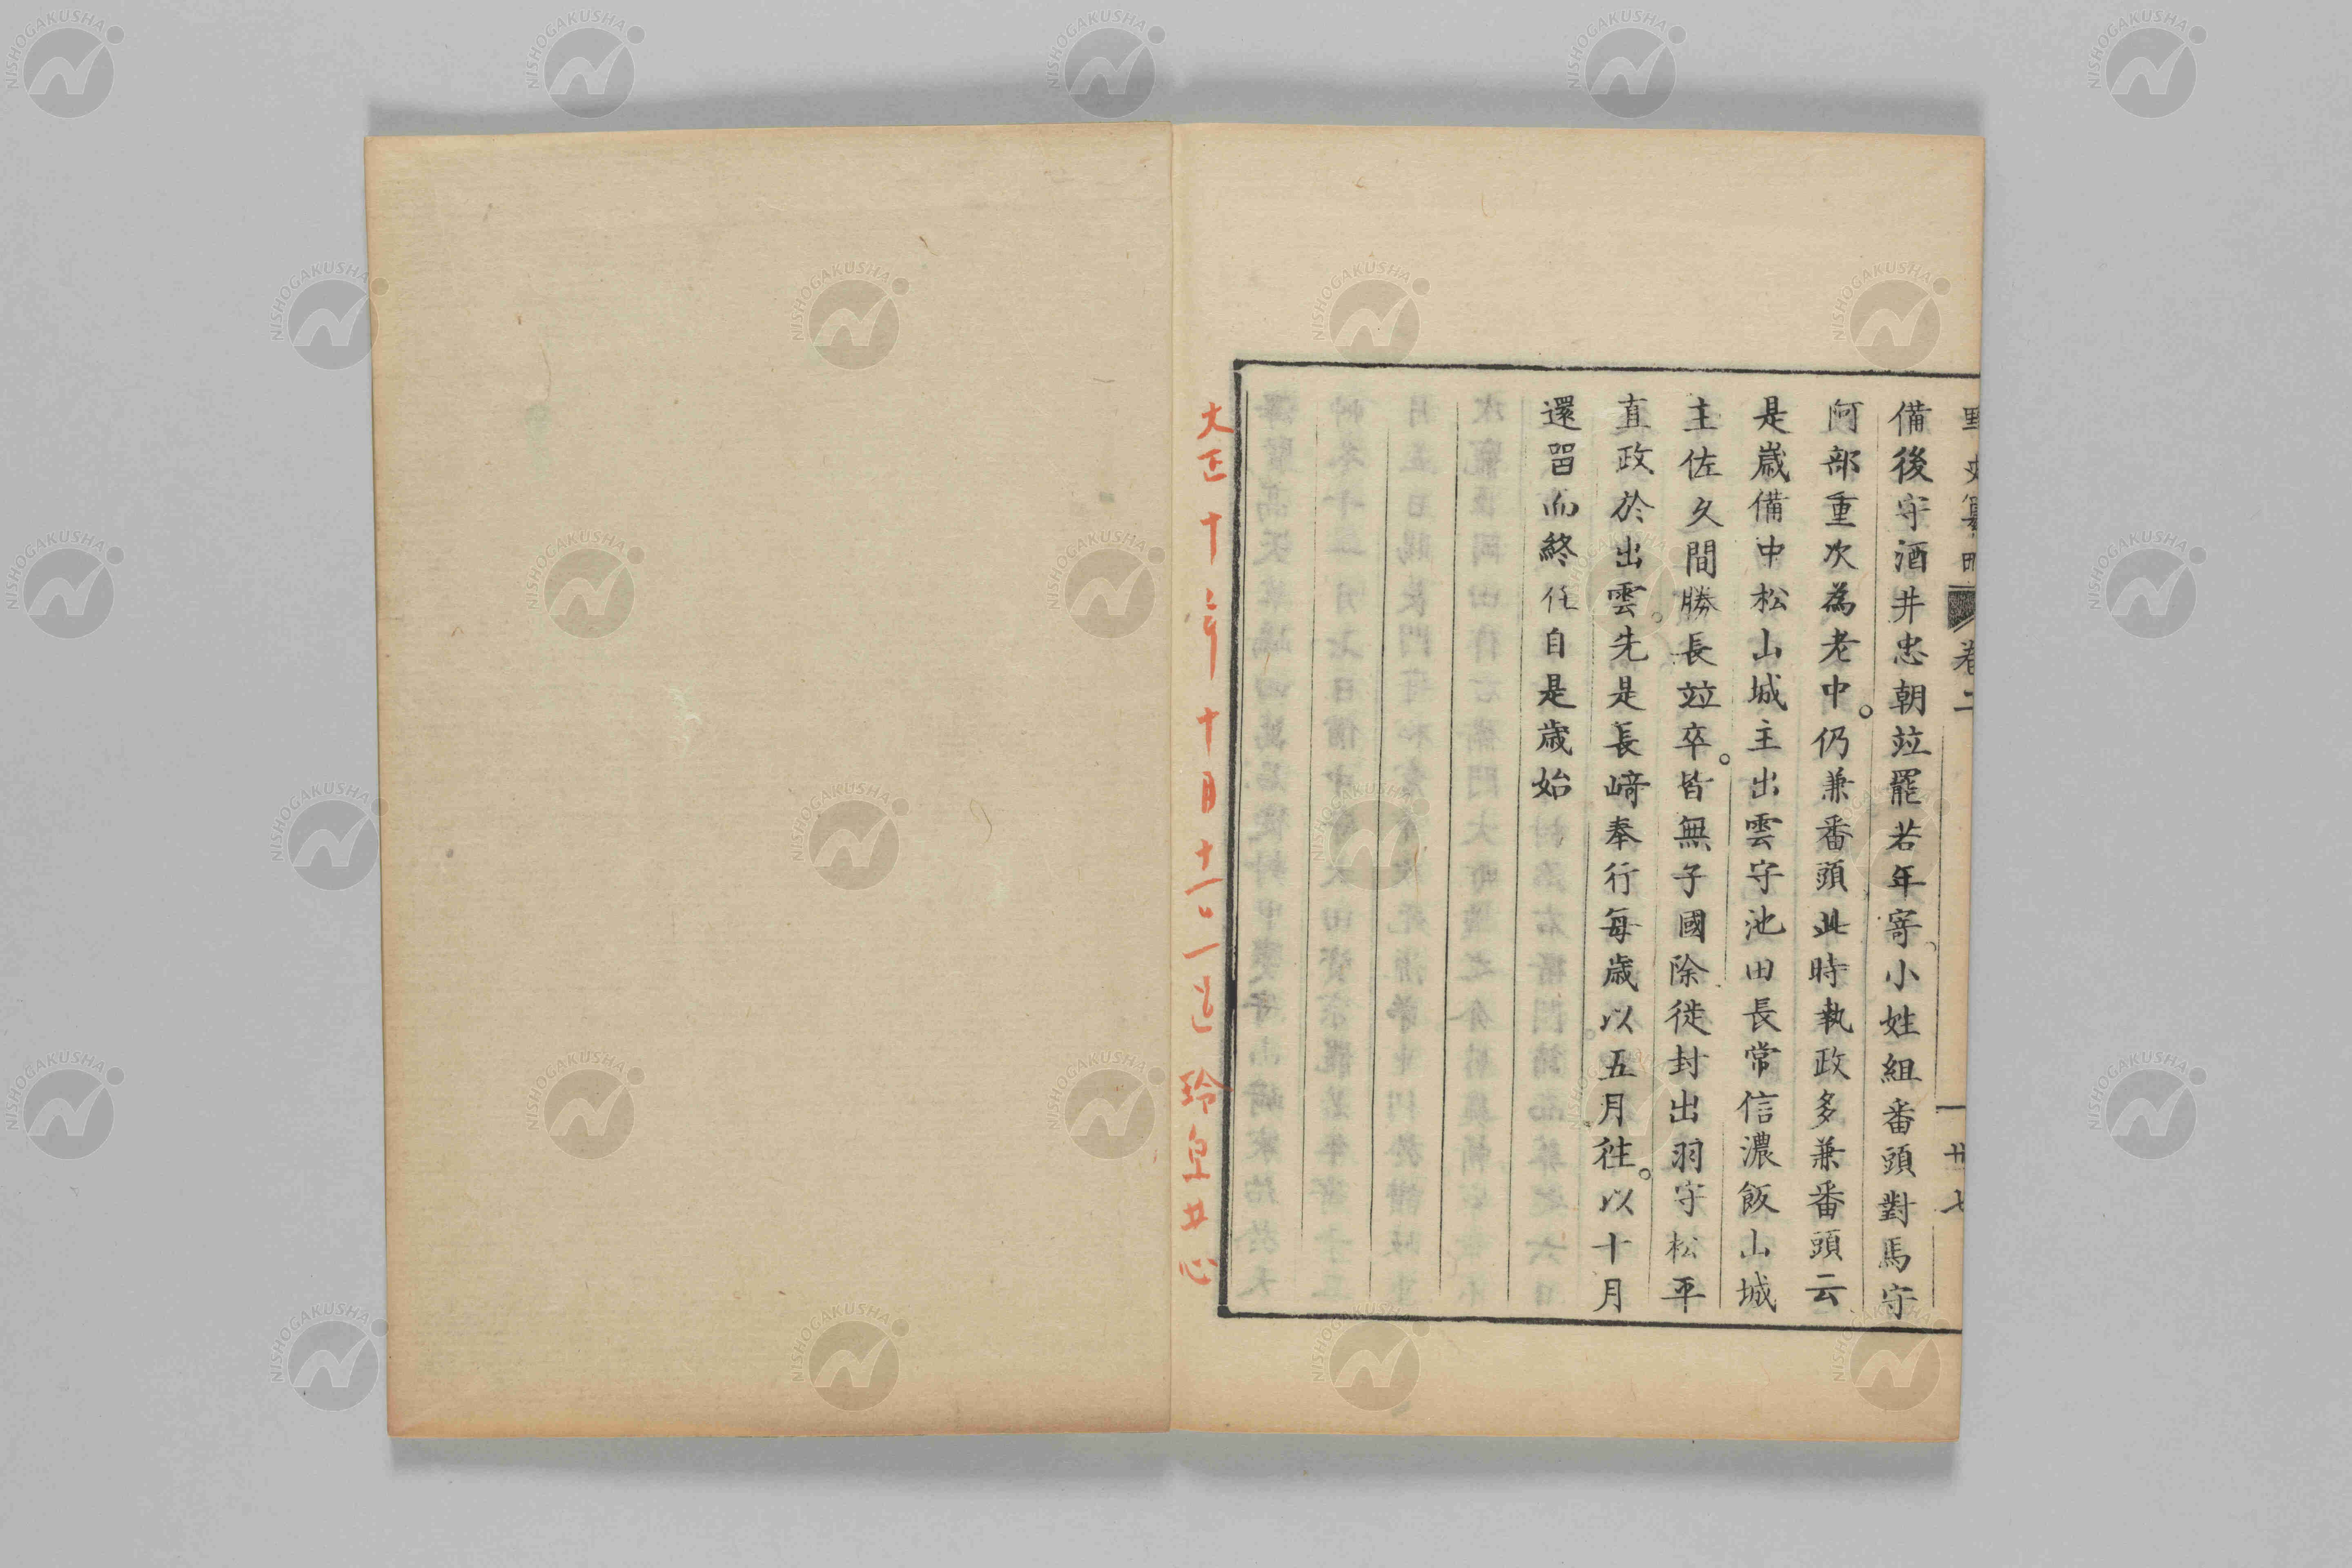 野史纂略 卷二 廿七
備後守酒井忠朝竝罷若年寄小姓組番頭對馬守
阿部重次為老中。仍兼番頭此時執政多兼番頭云
是歲備中松山城主出雲守池田長常信濃飯山城
主佐久間勝長竝卒。皆無子國除徙封出羽守松平
直政於出雲。先是長﨑奉行每歲以五月往。以十月
還留而終任自是歲始
大正十二年十月十一日一
NISHOGAKUSHA